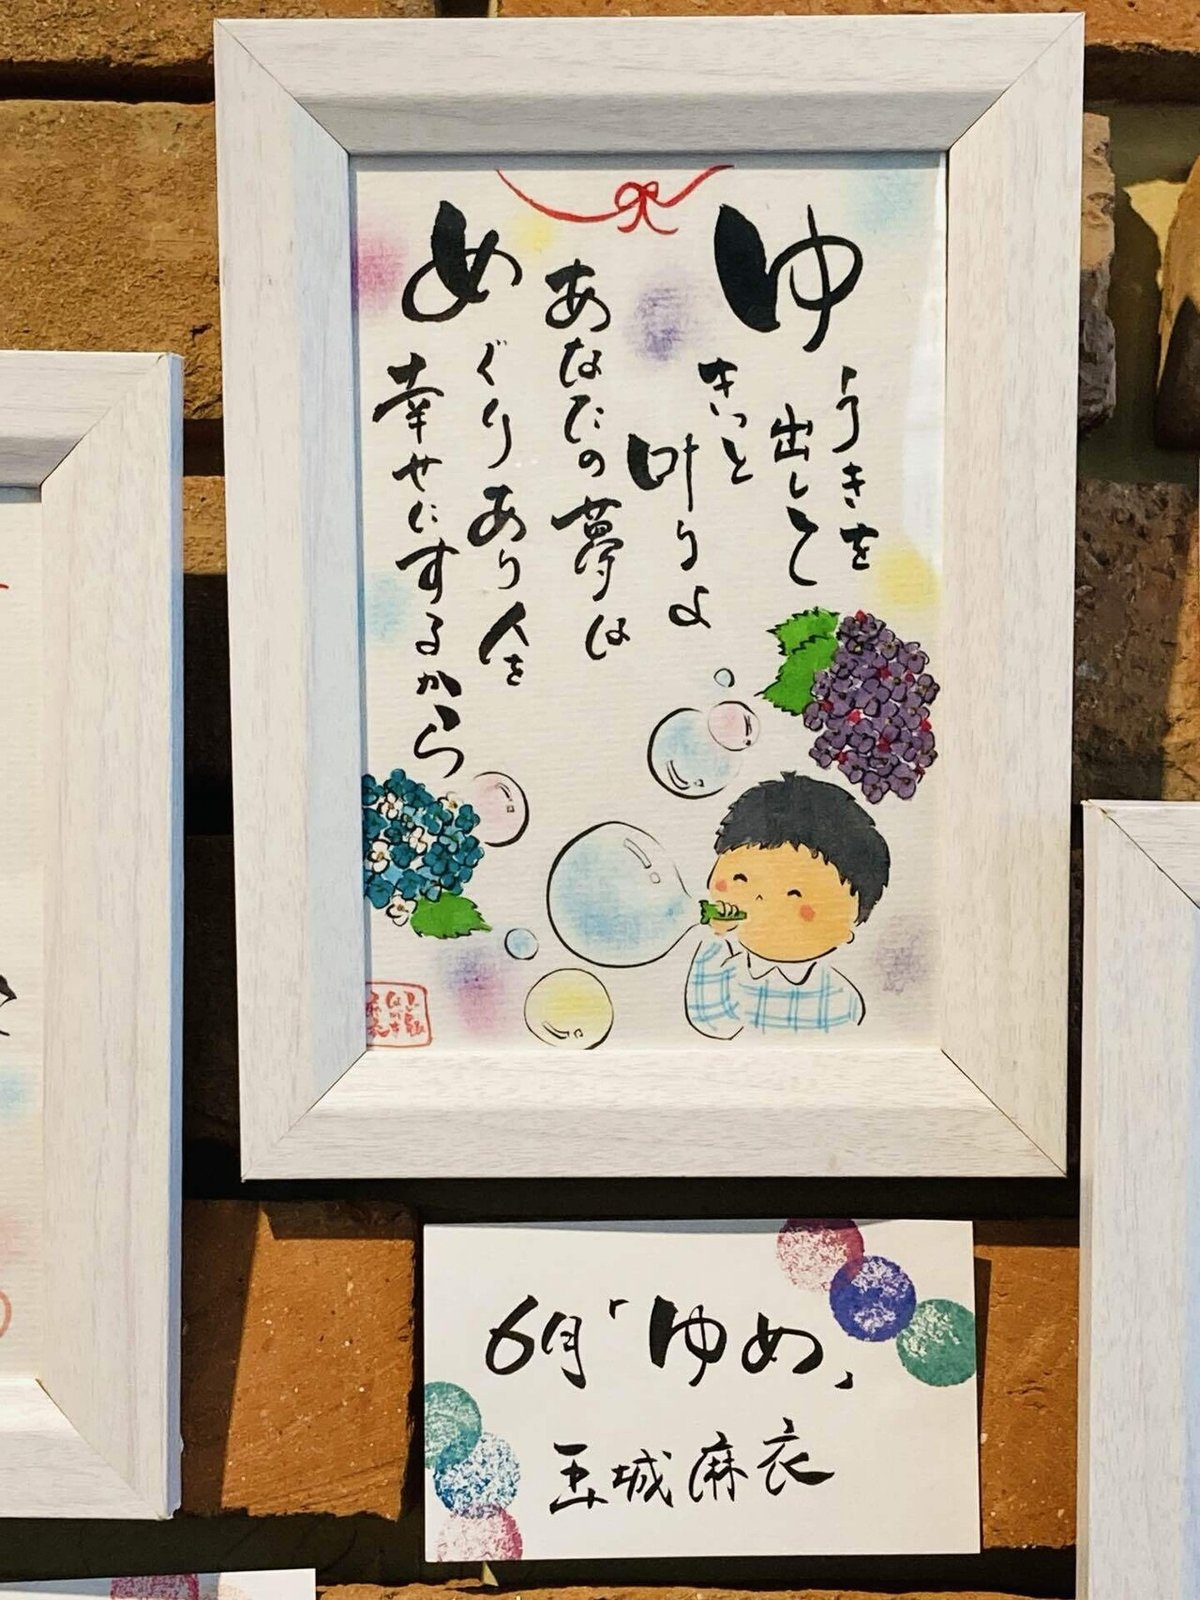 ゆうきを
出して
きっと
叶うよ
あなたの夢は
めぐりあう人を
幸せにするから
6月「ゆめ」
玉城麻衣